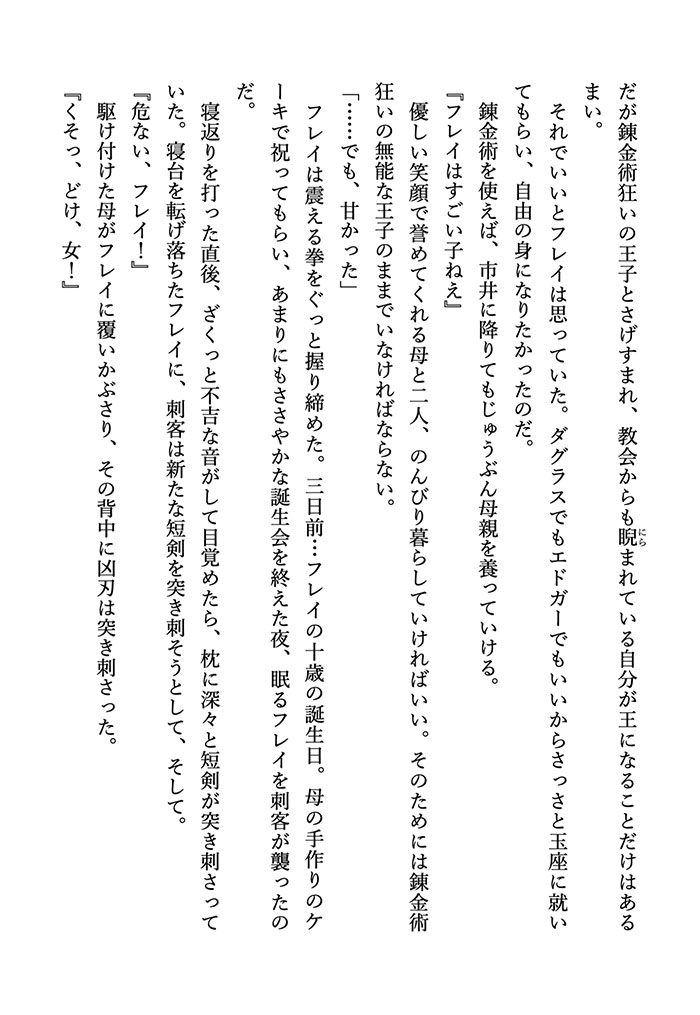 だが錬金術狂いの王子とさげすまれ、教会からも睨まれている自分が王になることだけはある
にら
まい。
それでいいとフレイは思っていた。ダグラスでもエドガーでもいいからさっさと玉座に就い
てもらい、自由の身になりたかったのだ。
錬金術を使えば、市井に降りてもじゅうぶん母親を養っていける。
『フレイはすごい子ねえ』
優しい笑顔で誉めてくれる母と二人、のんびり暮らしていければいい。そのためには錬金術
狂いの無能な王子のままでいなければならない。
「……でも、甘かった」
フレイは震える拳をぐっと握り締めた。三日前…フレイの十歳の誕生日。母の手作りのケ
ーキで祝ってもらい、あまりにもささやかな誕生会を終えた夜、眠るフレイを刺客が襲ったの
だ。
寝返りを打った直後、ざくっと不吉な音がして目覚めたら、枕に深々と短剣が突き刺さって
いた。寝台を転げ落ちたフレイに、刺客は新たな短剣を突き刺そうとして、そして。
『危ない、フレイ！』
駆け付けた母がフレイに覆いかぶさり、その背中に凶刃は突き刺さった。
『くそっ、どけ、女！』